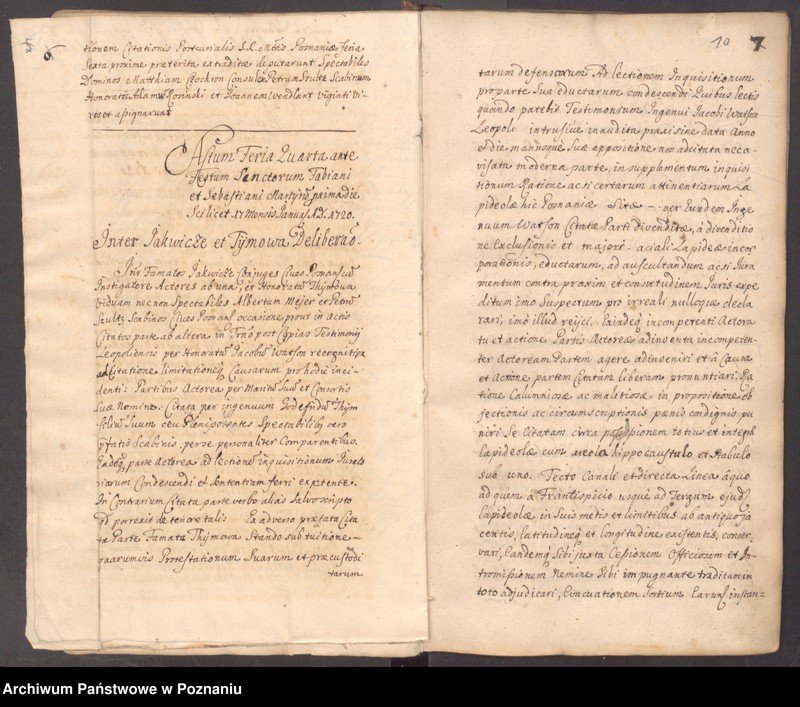 tionem Citationis Portcurialis S. R. Mttis Posnaniæ feria
Sexta proxime præterita extraditæ deputarunt Spectabiles
Dominos Matthiam Czochron Consulem Petrum Srultz Scabinum
Honoratos Adamum Rosinski et Joannem Wendlant Viginti Vi-
ros et assignarunt
Actum Feria Quarta ante
Festum Sanctorum Fabiani
et Sebastiani Martyrum prima die
Scilicet 17 Mensis Januarii A.D. 1720.
Inter Jakwicze et Tÿmowa Deliberao.
Inter Famatos Jakwicze Conjuges Cives Posnan
Instigatore Actores ab una, et Honoratam Thÿmowa
Viduam nec non Spectabiles Albertum Mejer et Petrum
Szultz Scabinos Cives Posnan occasione prout in Actis
Citatos parte ab altera in Trno post Copias Testimonÿ
Leopoliensis per Honoratum Jacobum Watson recognitisq
ad Citatione limitationeq Causarum pro hodie inci-
denti: Partibus Actorea per Maritum Suum et Consortis
Suæ Nomine. Citata per ingenuum Godefridum Thÿm
filium Suum ceu Plenipotentes Spectabilibus vero
pfatis Scabinis, per se personaliter Comparentibus.
Eademq parte Actorea ad lectionem inquisitionum Jurato
riarum Condescendi et Sententiam ferri expetente.
In Contrarium Citata parte verbo alias Salvo scripto
qd porrexit de tenore tali: Ex adverso præfata Cita
ta Parte Famata Thÿmowa Stando sub tuitione -
quarumvis Protestationum Suarum et præcustodi
tarum
10 7
tarum defensorum Ad lectionem Inquisitionum
pro parte Sua eductarum condescendi Quibus lectis
quando patebit Testimonium Ingenui Jacobi Watson
Leopoli intrusive inaudita praxi sine data Anno
et die manusque Suæ appositione non adcitata nec a-
visata moderna parte, in supplementum inquisi
tionum Ratione ac si certarum attinentiarum La
pideolæ hic Posnaniæ Sitæ - per Eundem Inge
nuum Watson Citatæ Parti divenditæ, à divenditio
ne Exclusionis et majori aciali Lapideæ incor
porationis, eductarum, ad auscultandum ac si Jura
mentum contra praxim et consvetudinem Juris expe
ditum imo Suspectum pro irreali nulloque decla
rari, imo illud rejici. Exindeq incomperenti Actora
tu et actione Partis Actoreæ adinventa incompeten-
ter Actoream Partem agere adinveniri et à Causa
et Actione partem Citatam liberam pronuntiari. Ra
tione Calumniosæ ac malitiosæ in propositione ob
jectionis ac circumscriptionis pænis condignis pu
niri Se Citatam circa possessionem totius et integræ
Lapideolæ cum areola hippocaustulo et Stabulo
sub uno Tecto Canale et directa Linea à quo
ad quem à Frontispicio usque ad Tergum ejusd
Lapideolæ in Suis metis et limitibus ab antiquo ja
centis, latitudineq et longitudine existentis, conser
vari, Eandemq Sibi juxta Cessionem Officiosam et In-
tromissionem Nemine Sibi impugnante traditam in
toto adjudicari, Evacuationem Sortium Earund instan=
Archiwum Państwowe w Poznaniu